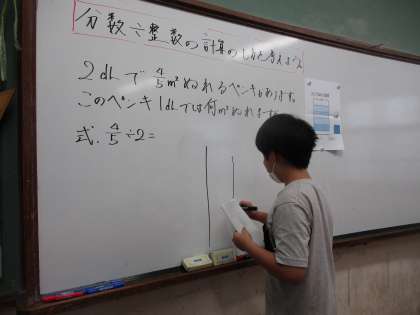 分数÷整数の計算のしかたを考えよう。
2dLで4/5m²ぬれるペンキがあります。
このペンキ1dLでは何m²ぬれますか。
式. 4/5÷2=